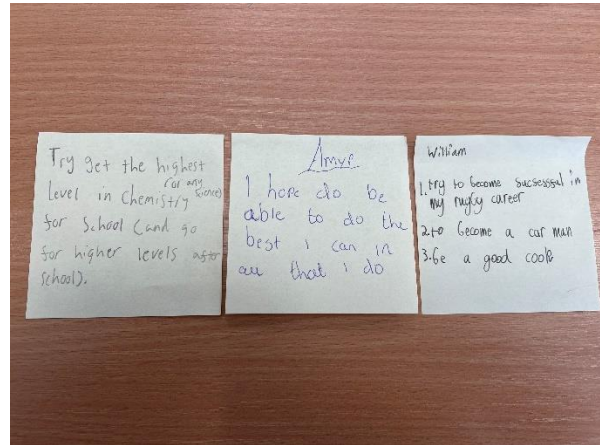 Try get the highest
level in Chemistry (or any science)
for School (and go
for higher levels after
school).
I hope do be
able to do the
best i can in
all that i do
William
1. try to become sucsessful in
my rugby career
2. to become a car man
3. be a good cook